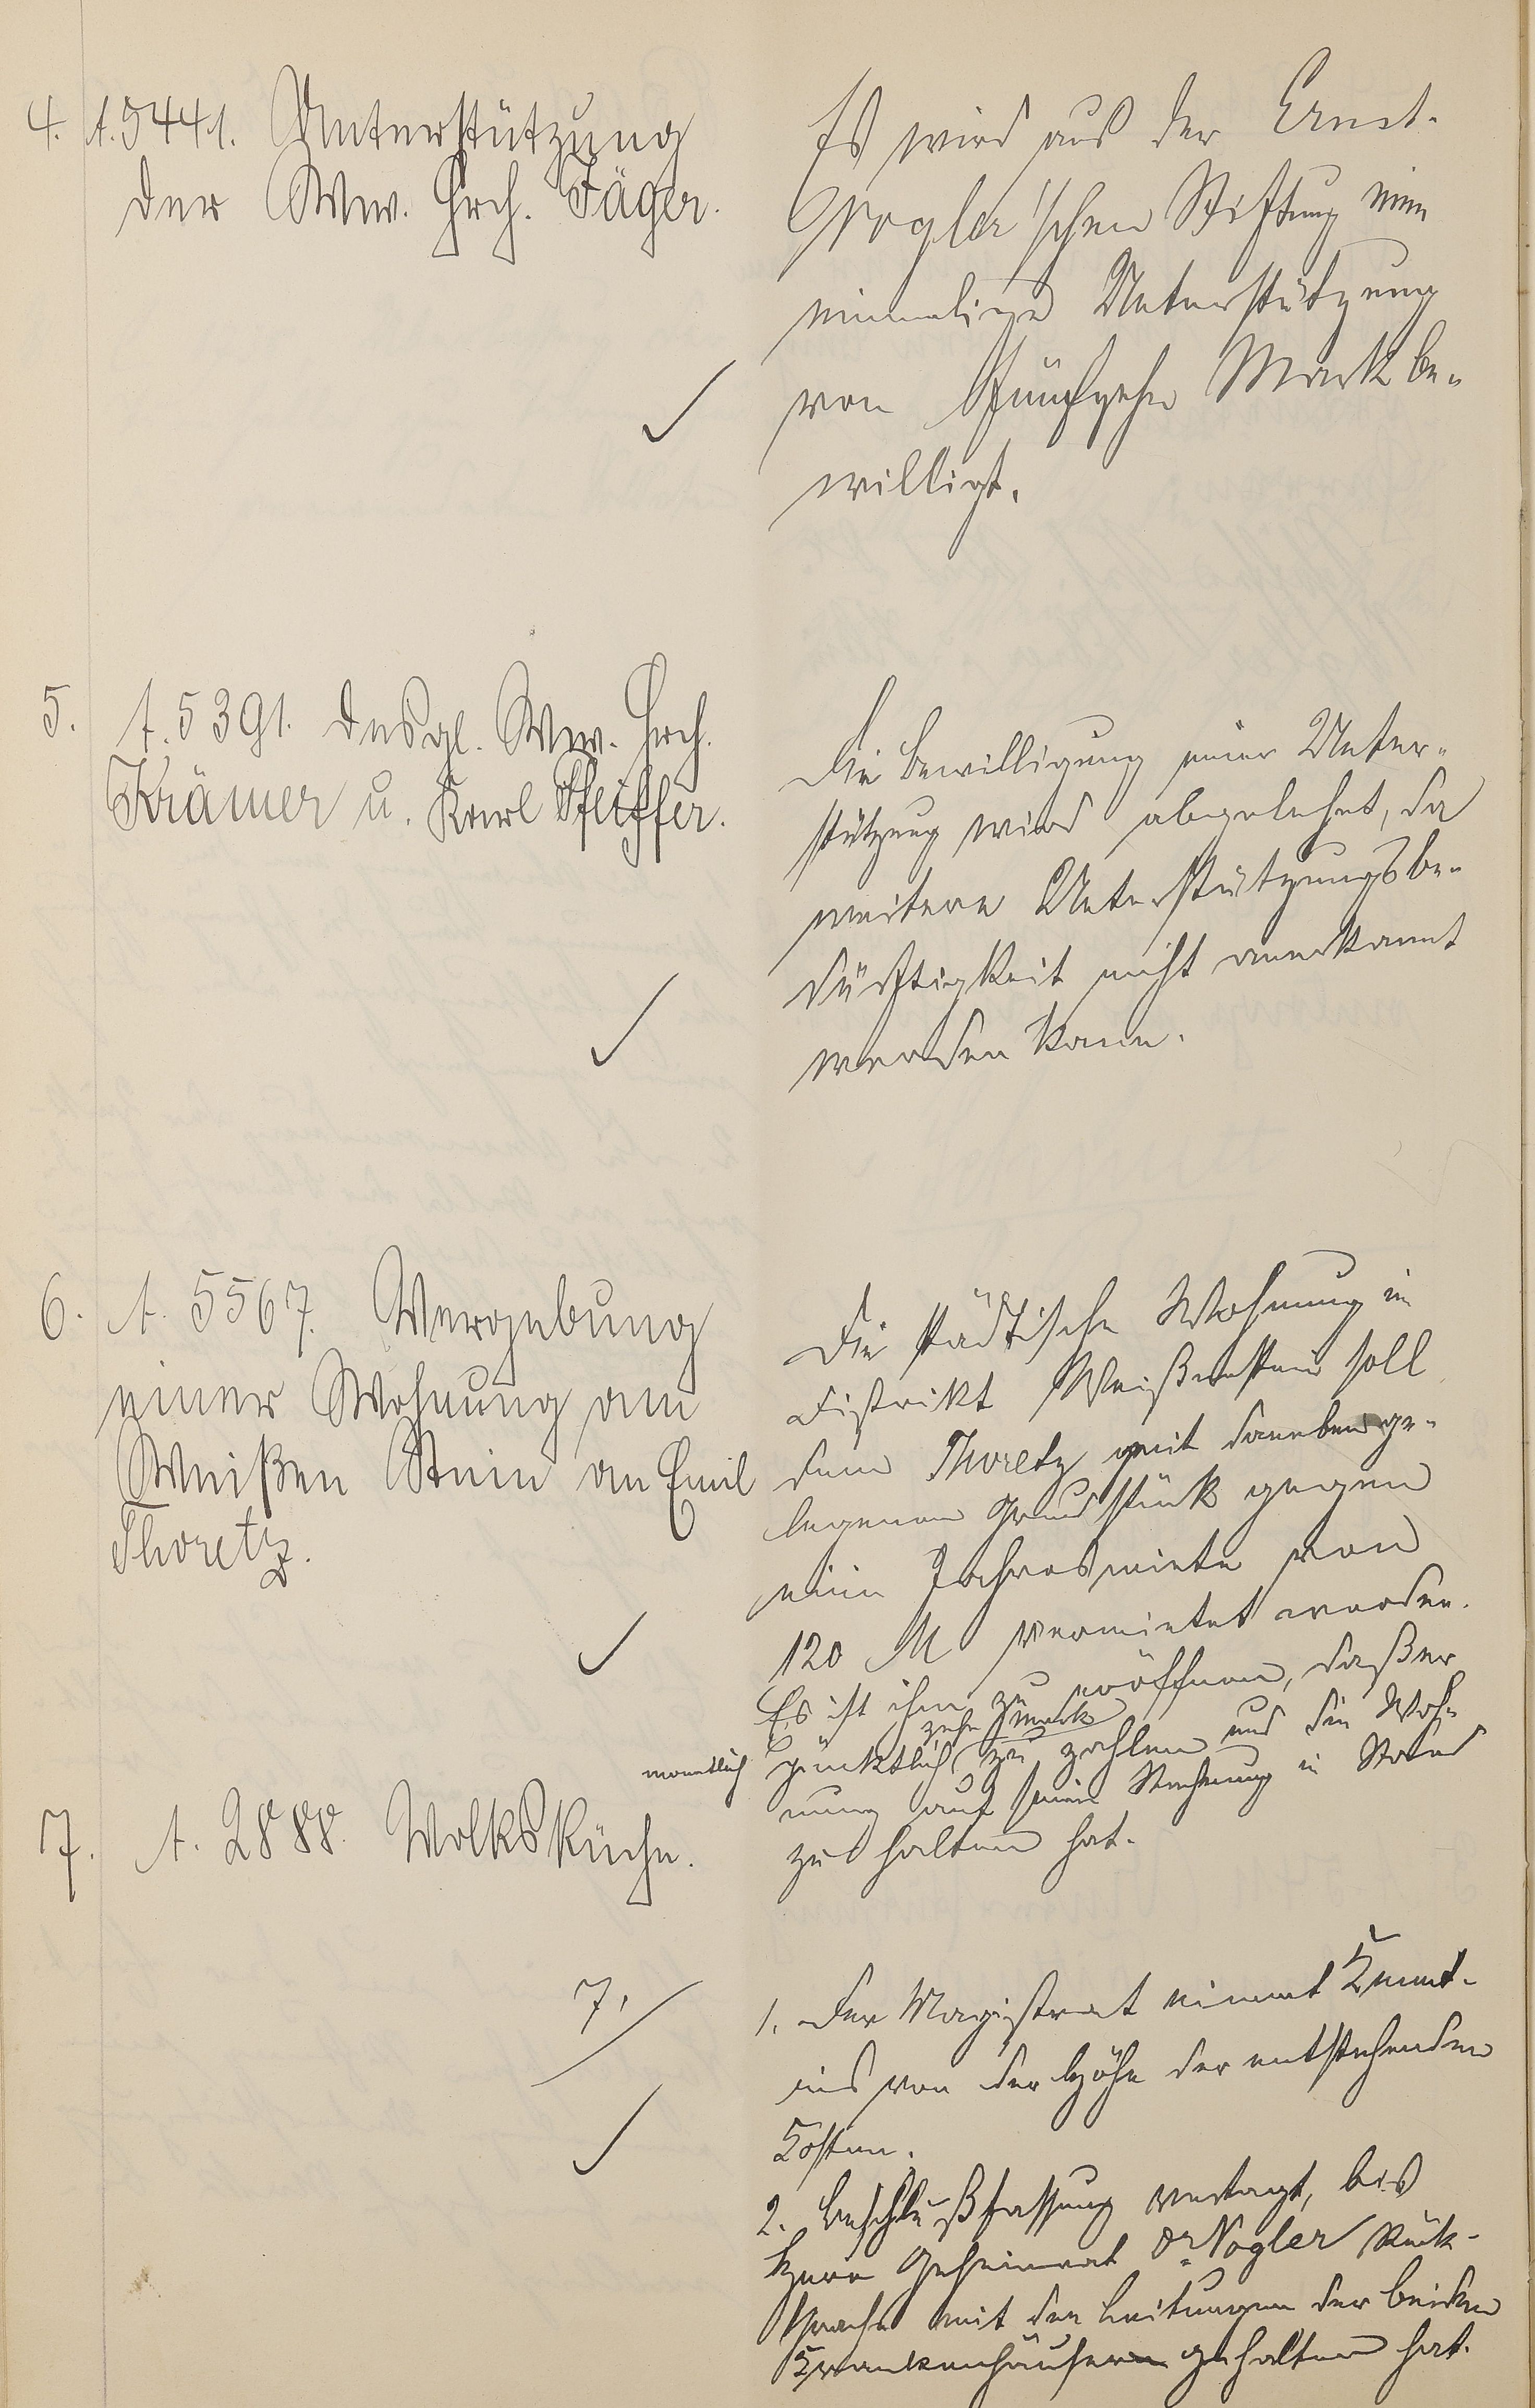 4. A. 5441. Unterstützung
der Wwe. Hrch. Jäger.
Es wird aus der Ernst-
Vogler'schen Stiftung eine
einmalige Unterstützung
von Fünfzehn Mark be-
willigt.
5. A. 5391. Desgl. Wwe. Hrch.
Krämer u. Karl Pfeiffer.
Die Bewilligung einer Unter-
stützung wird abgelehnt, da
weitere Unterstützungsbe-
dürftigkeit nicht anerkannt
werden kann.
6. A. 5567. Vergebung
einer Wohnung am
Weißen Stein an Emil
Thoretz.
Die städtische Wohnung im
Distrikt Weißenstein soll
dem Thoretz mit danebenge-
legenem Grundstück gegen
eine Jahresmiete von
120 M vermietet werden.
Es ist ihm zu eröffnen, daß er
zehn Mark
monatlich pünktlich zu zahlen und die Woh-
nung auf seine Rechnung in Stand
zu halten hat.
7. A. 2888. Volksküche.
7.
1. Der Magistrat nimmt Kennt-
nis von der Höhe der entstehenden
Kosten.
2. Beschlußfassung vertagt, bis
Herr Geheimrat Dr Vogler Rück-
sprache mit den Leitungen der beiden
Krankenhäuser gehalten hat.